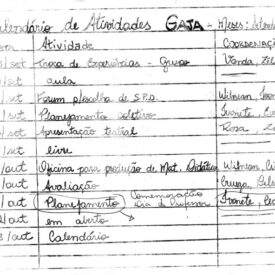 alendário de Atividades GAJA - Meses: Setemb
ata Atividade Coordenaçã
/set Troca de Experiências - Grupo Vanda,
/set aula
/set Forum p/escolha de S.P.D. Wilmson, Ivon
/set Planejamento coletivo Ivonete,
/set Apresentação teatral Rosa,
/set livre
/out Oficina para produção de Mat. Didático Wilmson, Ci
/out Avaliação
/out Planejamento Comemoração dia do Professor Ivonete,
/out em aberto
/out Calendário